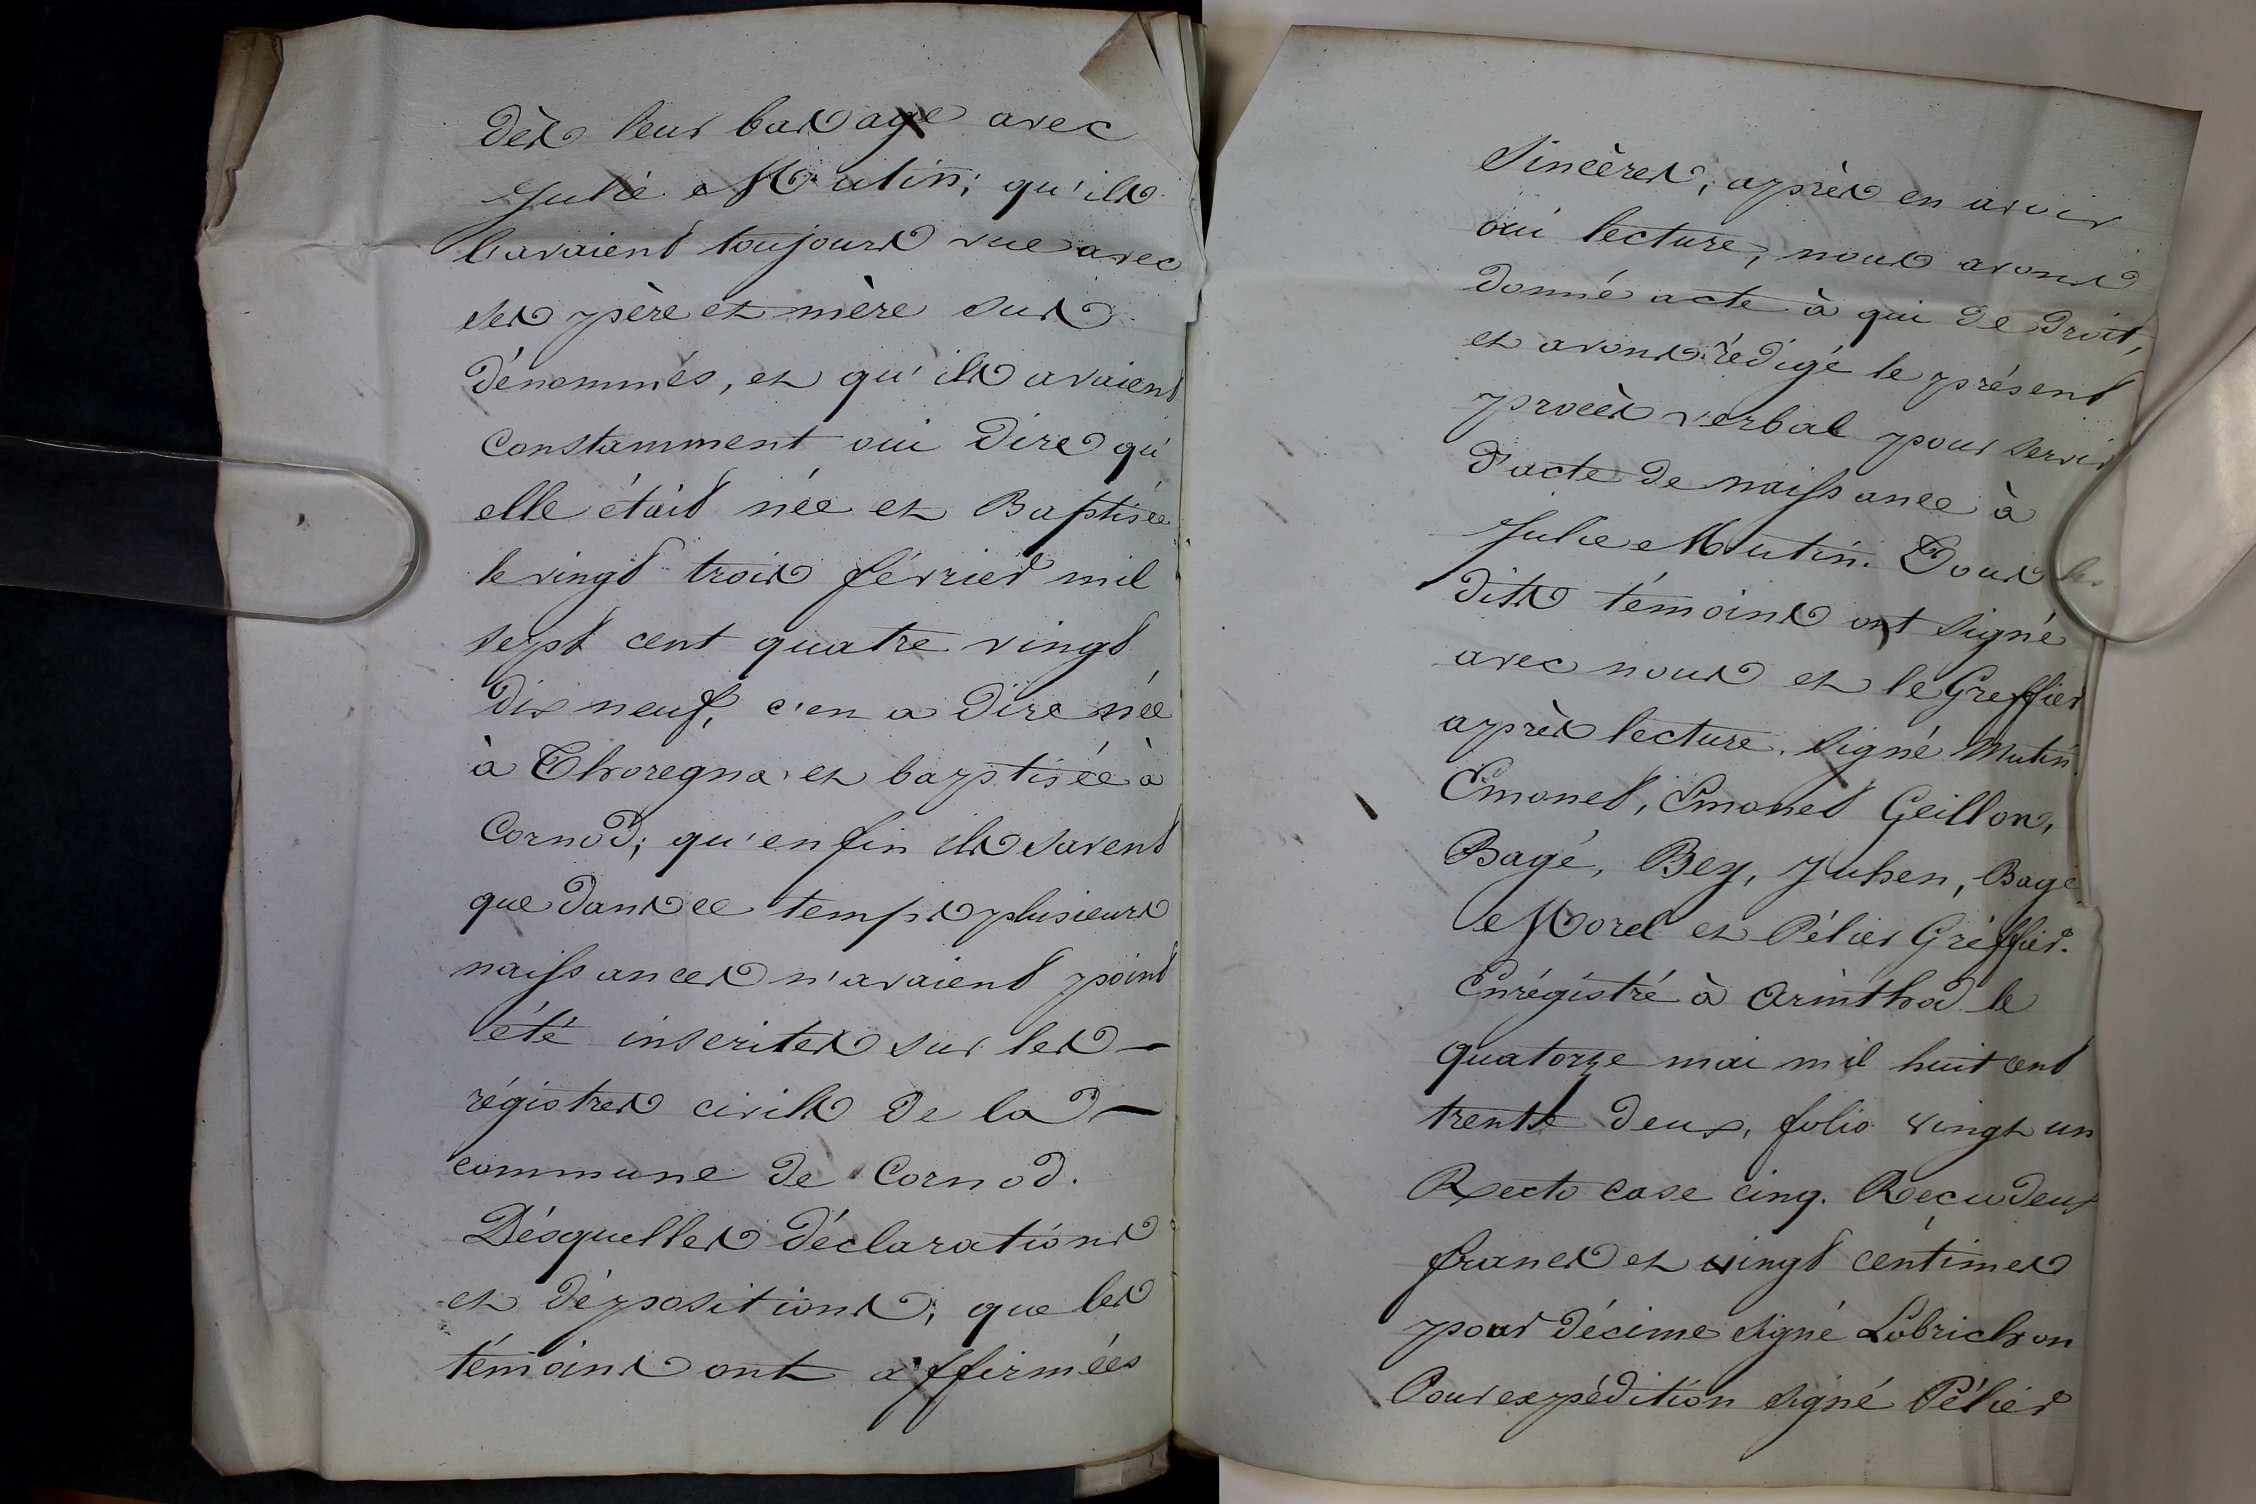 dès leur bas age avec
Julie Mutin; qu'ils
l'avaient toujours vue avec
ses père et mère sus
dénommés, et qu'ils avaient
constamment oui dire qu'
elle était née et Baptisée
le vingt trois février mil
sept cent quatre vingt
dix neuf, c'en a dire née
à Thoregna et baptisée à
Cornod; qu'enfin ils savent
que dans ce temps plusieurs
naissances n'avaient point
été inscrites sur les
régistres civils de la
commune de Cornod.
Désquelles déclarations
et dépositions, que les
témoins ont affirmées
Sincères, après en avoir
oui lecture, nous avons
donné acte à qui de droit,
et avons rédigé le présent
procès verbal pour servir
d'acte de naissance à
Julie Mutin. Tous les
dits témoins ont signé
avec nous et le Greffier
après lecture. signé Mutin
Emonet, Emonet Geillon,
Bagé, Bey, Julien, Bagé
Morel et Pélier Greffier.
Enrégistré à Arinthod le
quatorze mai mil huit cent
trente deux, folio vingt un
Recto case cinq. Reçu deux
francs et vingt centimes
pour décime signé Lobrichon
Pour expédition signé Pélier